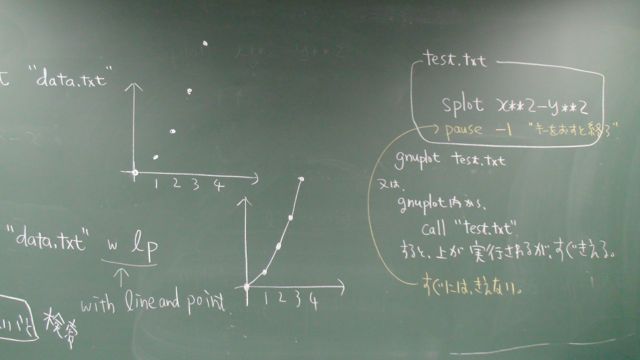 t "data.txt"
1 2 3 4
"data.txt" w lp
with line and point
1 2 3 4
検索
test.txt
splot x**2-y**2
pause -1 "キーをおすと終了"
gnuplot test.txt
又は、
gnuplot内から、
call "test.txt"
すると、上が実行されるが、すぐきえる。
すぐには、きえない。